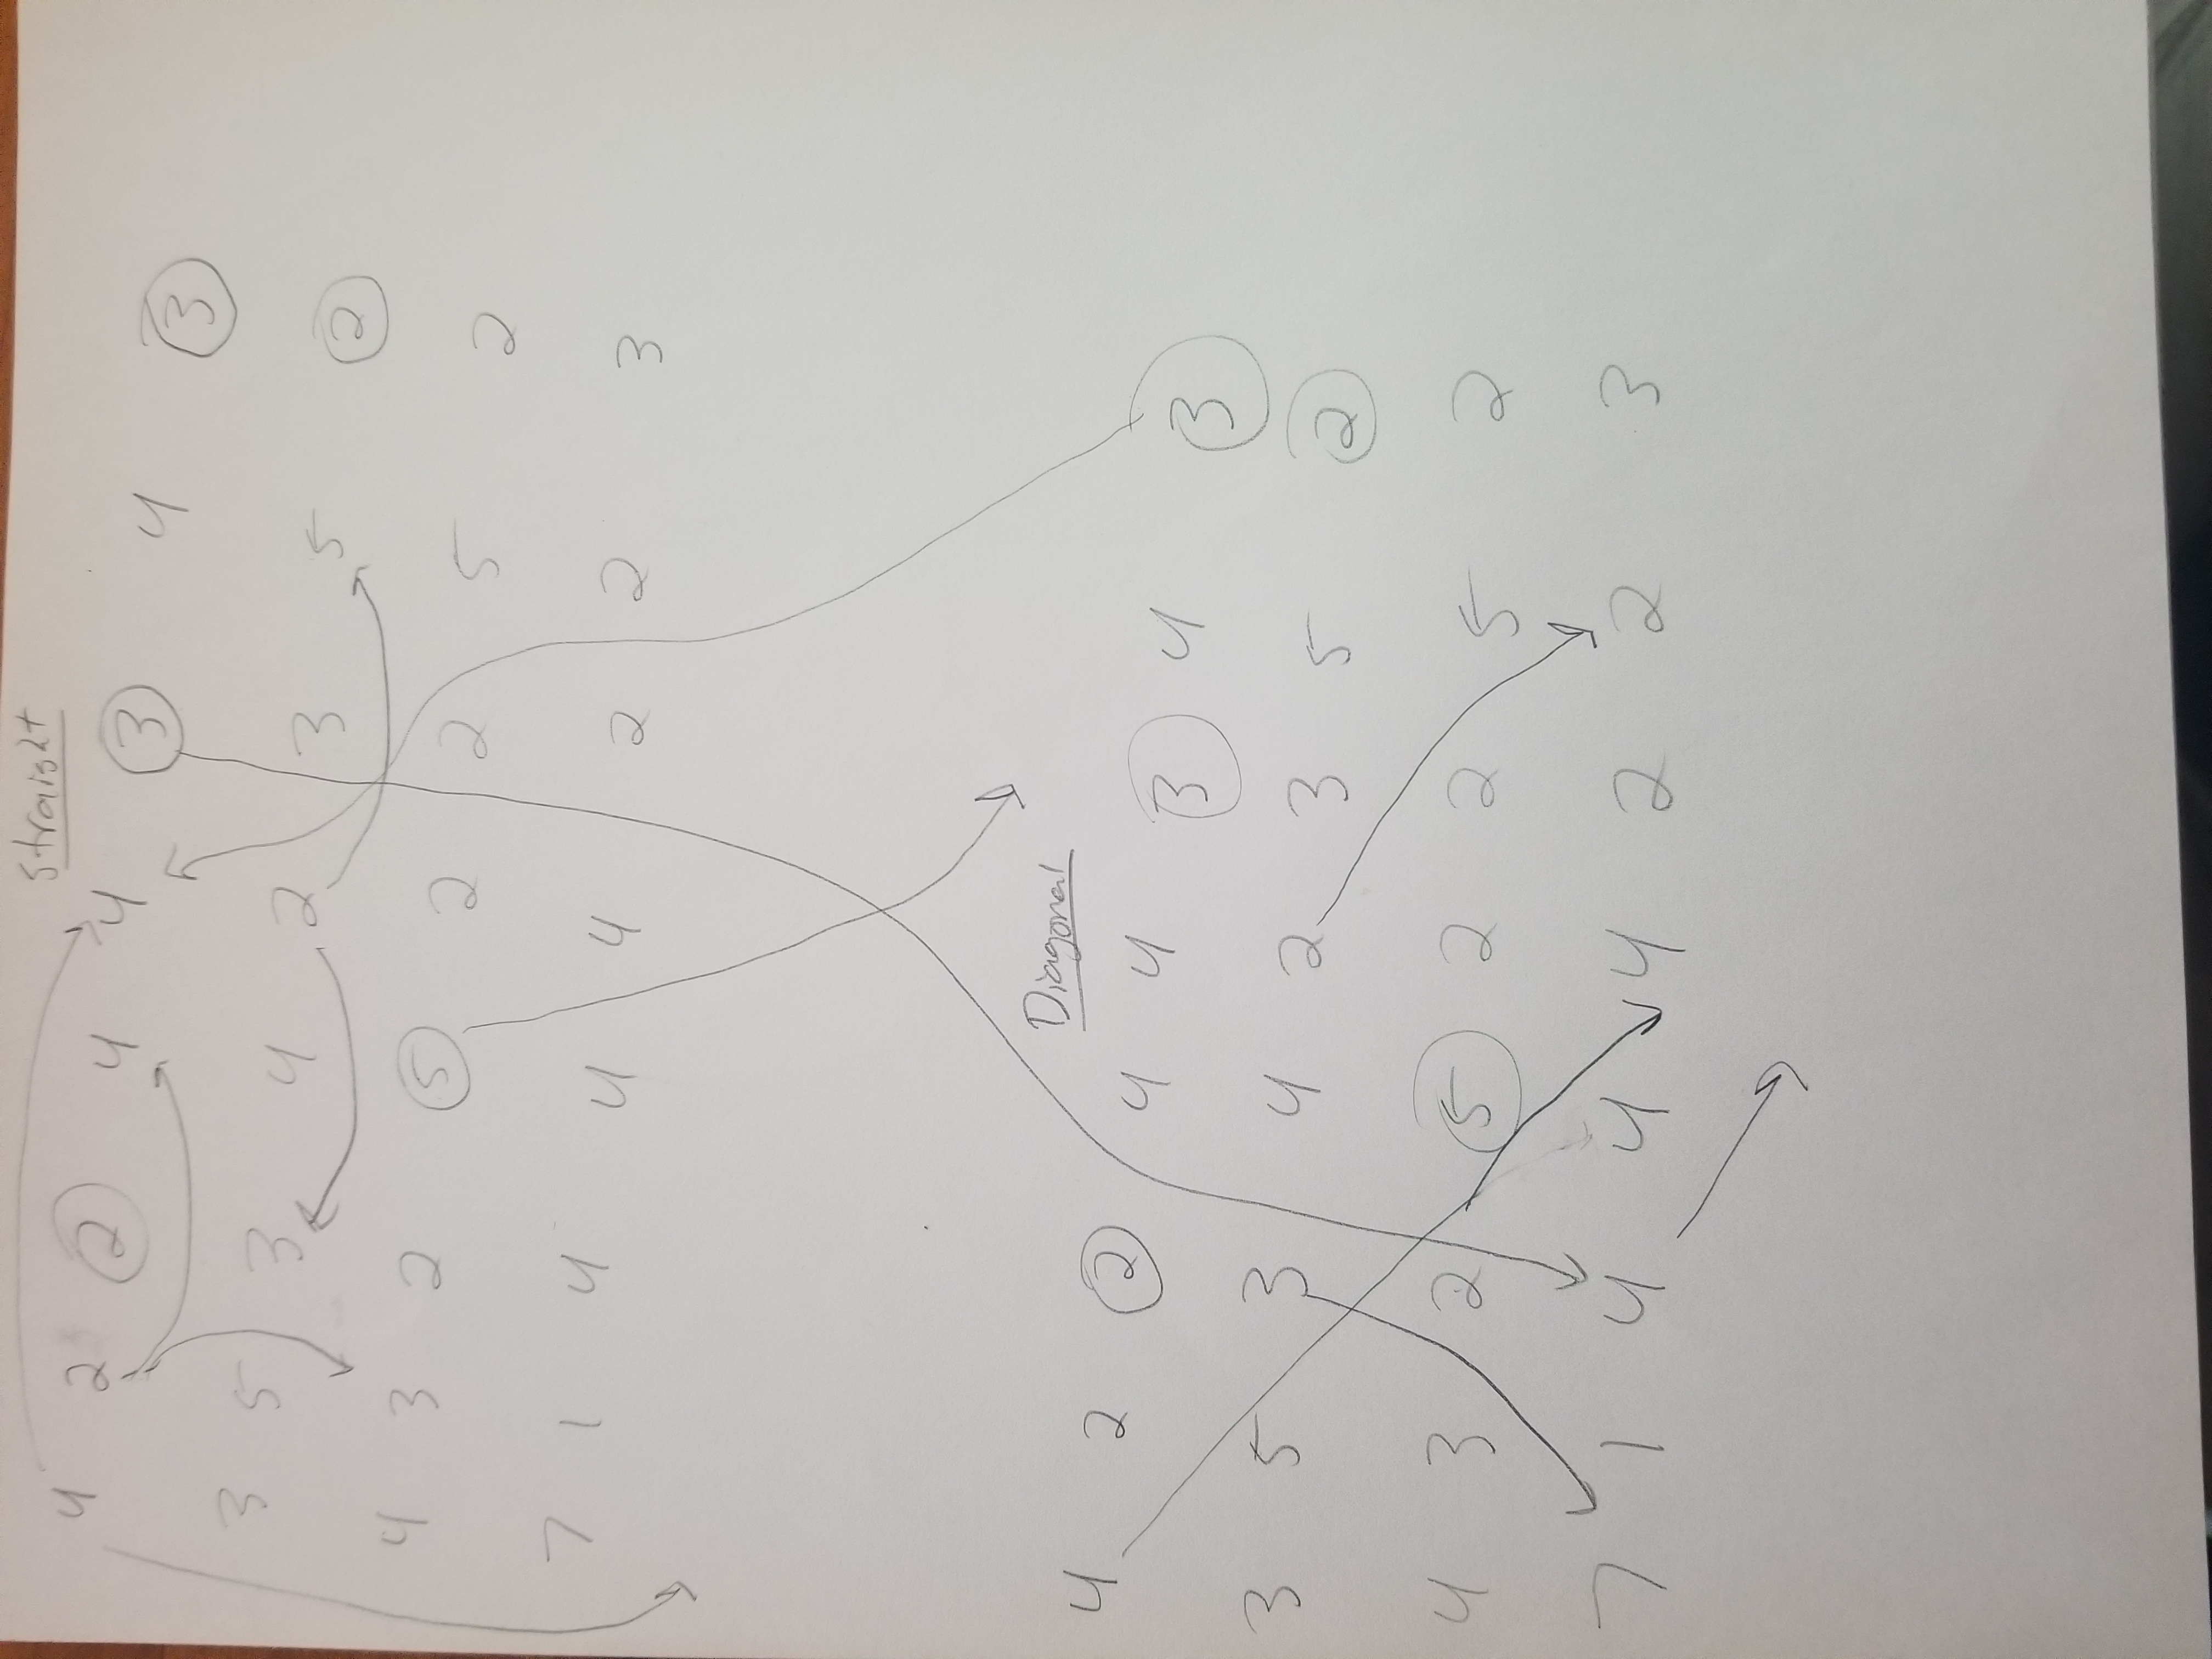 Straight
4 2 2 4 4 3 4 3
3 5 3 4 2 3 5 2
4 3 2 5 2 2 5 2
7 1 4 4 4 2 2 3
Diagonal
4 2 2 4 4 3 4 3
3 5 3 4 2 3 5 2
4 3 2 5 2 2 5 2
7 1 4 4 4 2 2 3